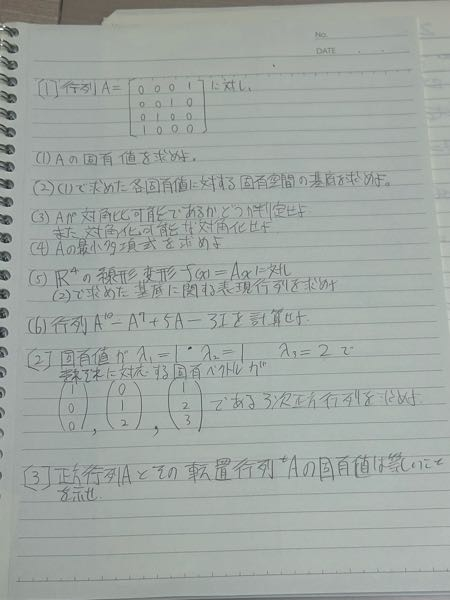 No.
DATE
[1] 行列A = [0 0 0 1 に対し、
0 0 1 0
0 1 0 0
1 0 0 0]
(1) Aの固有値を求めよ。
(2) (1)で求めた各固有値に対する固有空間の基底を求めよ。
(3) Aが対角化可能であるかどうか判定せよ
また対角化可能な対角化せよ
(4) Aの最小多項式を求めよ
(5) R⁴の線形変形 f(x) = Axに対し
(2)で求めた基底に関する表現行列を求め
(6) 行列 A¹⁰ - A⁷ + 5A - 3I を計算せよ
[2] 固有値が λ₁ = 1 λ₂ = 1 λ₃ = 2 で
に対応する固有ベクトルが
(1 0 0), (0 1 2), (1 2 3) である3次正方行列を求めよ
[3] 正方行列Aとその転置行列 ᵗAの固有値は等しいこと
を示せ